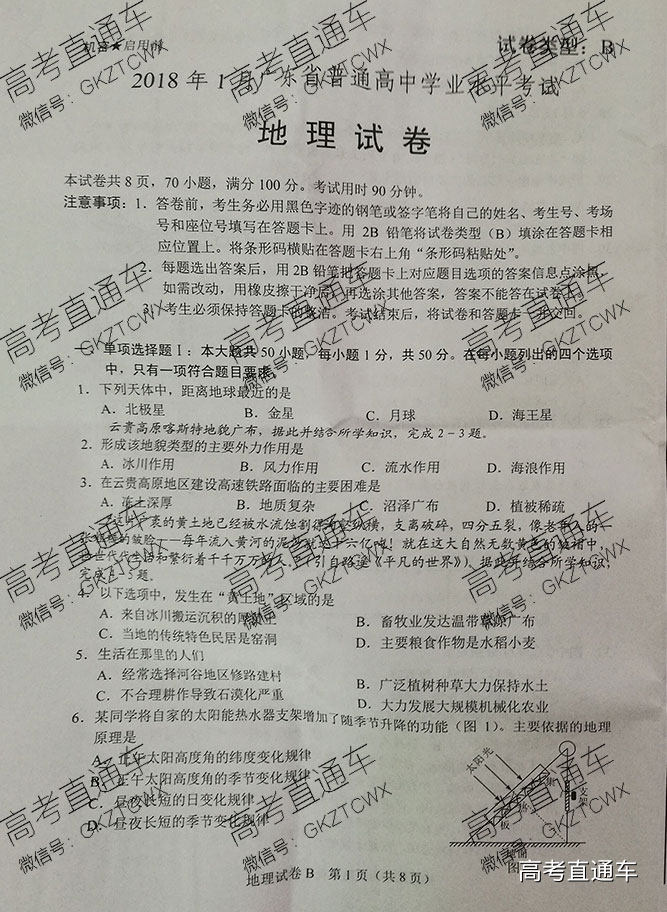 机密★启用前
试卷类型：B
2018年1月广东省普通高中学业水平考试
地理试卷
本试卷共8页，70小题，满分100分。考试用时90分钟。
注意事项：1．答卷前，考生务必用黑色字迹的钢笔或签字笔将自己的姓名、考生号、考场
号和座位号填写在答题卡上。用2B铅笔将试卷类型（B）填涂在答题卡相
应位置上。将条形码横贴在答题卡右上角“条形码粘贴处”。
2．每题选出答案后，用2B铅笔把答题卡上对应题目选项的答案信息点涂黑，
如需改动，用橡皮擦干净后，再选涂其他答案，答案不能答在试卷上。
3．考生必须保持答题卡的整洁。考试结束后，将试卷和答题卡一并交回。
一、单项选择题Ⅰ：本大题共50小题，每小题1分，共50分。在每小题列出的四个选项
中，只有一项符合题目要求。
1．下列天体中，距离地球最近的是
A．北极星 B．金星 C．月球 D．海王星
云贵高原喀斯特地貌广布，据此并结合所学知识，完成2－3题。
2．形成该地貌类型的主要外力作用是
A．冰川作用 B．风力作用 C．流水作用 D．海浪作用
3．在云贵高原地区建设高速铁路面临的主要困难是
A．冻土深厚 B．地质复杂 C．沼泽广布 D．植被稀疏
的黄土地已经被水流蚀割得沟壑纵横，支离破碎，四分五裂，像老
的皱脸——每年流入黄河的泥沙 十六亿吨！就在这大自然无数黄色的皱褶中，
世世代代生活和繁衍着千千万万的人。（引自路遥《平凡的世界》）。据此并结合所学知识，
完成4－5题。
4．以下选项中，发生在“黄土地”区域的是
A．来自冰川搬运沉积的
B．畜牧业发达温带草原广布
C．当地的传统特色民居是窑洞
D．主要粮食作物是水稻小麦
5．生活在那里的人们
A．经常选择河谷地区修路建村
B．广泛植树种草大力保持水土
C．不合理耕作导致石漠化严重
D．大力发展大规模机械化农业
6．某同学将自家的太阳能热水器支架增加了随季节升降的功能（图1）。主要依据的地理
原理是
A．正午太阳高度角的纬度变化规律
B．正午太阳高度角的季节变化规律
C．昼夜长短的日变化规律
D．昼夜长短的季节变化规律
太阳光
集
热
板
支架
地理试卷B 第1页（共8页）
高考直通车
微信号：GKZTCWX